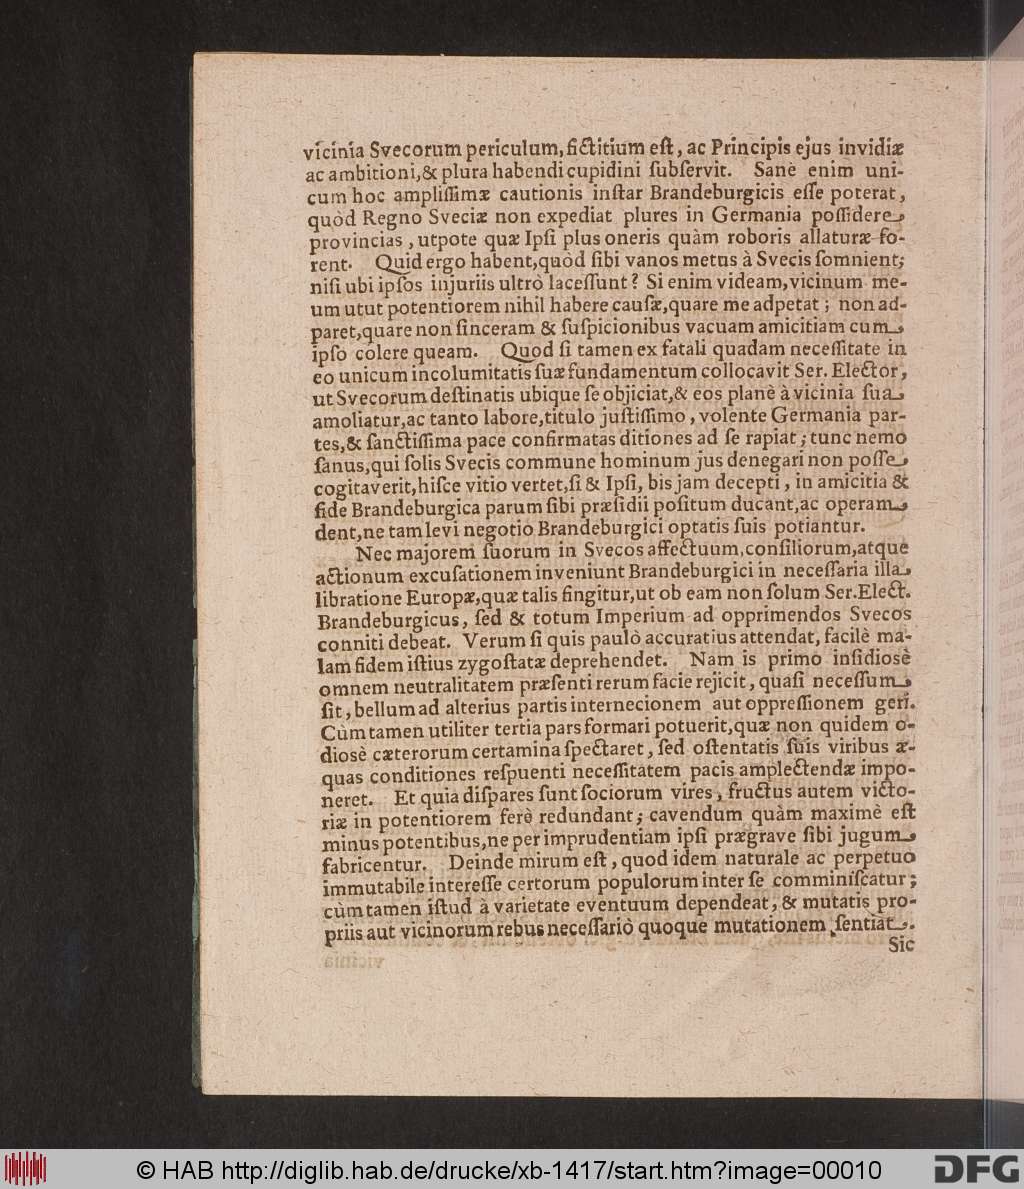 vicinia Svecorum periculum, fictitium est, ac Principis ejus invidiæ
ac ambitioni, & plura habendi cupidini ſubſervit. Sanè enim uni-
cum hoc ampliſſimæ cautionis inſtar Brandeburgicis eſſe poterat,
quòd Regno Sveciæ non expediat plures in Germania poſſidere
provincias, utpote quæ Ipſi plus oneris quàm roboris allaturæ fo-
rent. Quid ergo habent, quòd ſibi vanos metus à Svecis ſomnient;
niſi ubi ipſos injuriis ultrò laceſſunt? Si enim videam, vicinum me-
um utut potentiorem nihil habere cauſæ, quare me adpetat; non ad-
paret, quare non ſinceram & ſuſpicionibus vacuam amicitiam cum
ipſo colere queam. Quod ſi tamen ex fatali quadam neceſſitate in
eo unicum incolumitatis ſuæ fundamentum collocavit Ser. Elector,
ut Svecorum deſtinatis ubique ſe objiciat, & eos planè à vicinia ſua
amoliatur, ac tanto labore, titulo juſtiſſimo, volente Germania par-
tes, & ſanctiſſima pace confirmatas ditiones ad ſe rapiat; tunc nemo
ſanus, qui ſolis Svecis commune hominum jus denegari non poſſe
cogitaverit, hiſce vitio vertet, ſi & Ipſi, bis jam decepti, in amicitia &
fide Brandeburgica parum ſibi præſidii poſitum ducant, ac operam
dent, ne tam levi negotio Brandeburgici optatis ſuis potiantur.
Nec majorem ſuorum in Svecos affectuum, conſiliorum, atque
actionum excuſationem inveniunt Brandeburgici in neceſſaria illa
libratione Europæ, quæ talis fingitur, ut ob eam non ſolum Ser. Elect.
Brandeburgicus, ſed & totum Imperium ad opprimendos Svecos
conniti debeat. Verum ſi quis paulò accuratius attendat, facilè ma-
lam fidem iſtius zygoſtatæ deprehendet. Nam is primo inſidiosè
omnem neutralitatem præſenti rerum facie rejicit, quaſi neceſſum
ſit, bellum ad alterius partis internecionem aut oppreſſionem geri.
Cùm tamen utiliter tertia pars formari potuerit, quæ non quidem o-
diosè cæterorum certamina ſpectaret, ſed oſtentatis ſuis viribus æ-
quas conditiones reſpuenti neceſſitatem pacis amplectendæ impo-
neret. Et quia diſpares ſunt ſociorum vires, fructus autem victo-
riæ in potentiorem ferè redundant; cavendum quàm maximè eſt
minus potentibus, ne per imprudentiam ipſi prægrave ſibi jugum
fabricentur. Deinde mirum eſt, quod idem naturale ac perpetuo
immutabile intereſſe certorum populorum inter ſe comminiſcatur;
cùm tamen iſtud à varietate eventuum dependeat, & mutatis pro-
priis aut vicinorum rebus neceſſariò quoque mutationem ſentiat.
Sic
© HAB http://diglib.hab.de/drucke/xb-1417/start.htm?image=00010
DFG